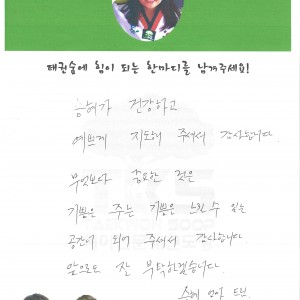 태권숨에 힘이 되는 한마디를 남겨주세요!
승혜가 건강하고
예쁘게 지도해 주셔서 감사합니다.
무엇보다 중요한 것은
기쁨은 주는 기쁨은 느낄 수 있는
공간이 되어 주셔서 감사합니다
앞으로도 잘 부탁하겠습니다
드림